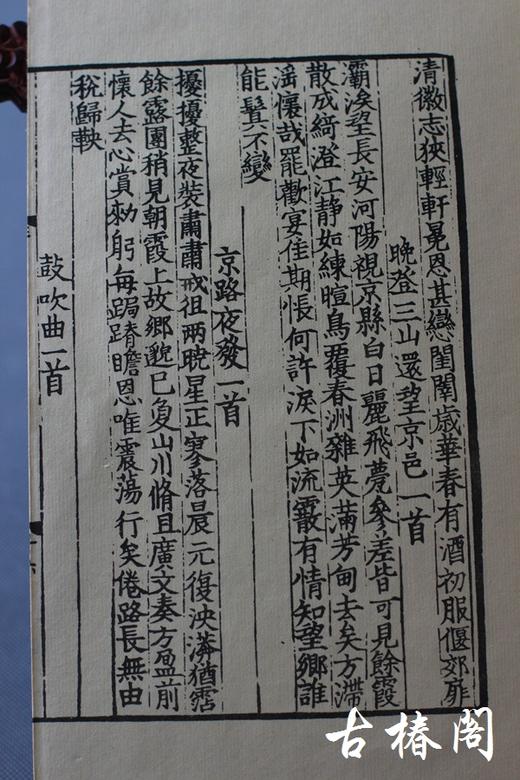 清徽志狹輕軒冕恩甚戀閨闈歲華春有酒初服偃郊扉
晚登三山還望京邑一首
灞涘望長安河陽視京縣白日麗飛甍參差皆可見餘霞
散成綺澄江静如練暄鳥覆春洲雜英滿芳甸去矣方滞
滛懷哉罷歡宴佳期悵何許淚下如流霰有情知望鄉誰
能鬒不變
京路夜發一首
擾擾整夜裝肅肅戒徂兩曉星正寥落晨元復泱漭猶霑
餘露團稍見朝霞上故鄉邈已夐山川脩且廣文奏方盈前
懷人去心賞勑躬每跼蹐瞻恩唯震蕩行矣倦路長無由
稅歸鞅
鼓吹曲一首
古椿閣